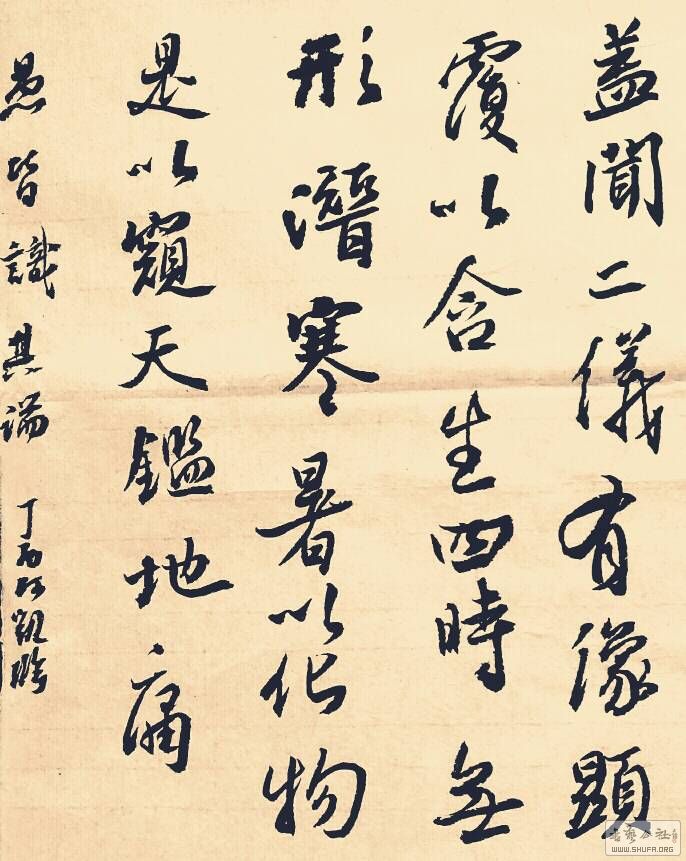 盖聞二儀有像顯
覆以含生四時無
形潛寒暑以化物
是以窺天鑑地庸
愚皆識其端
丁酉
WWW.SHUFA.ORG